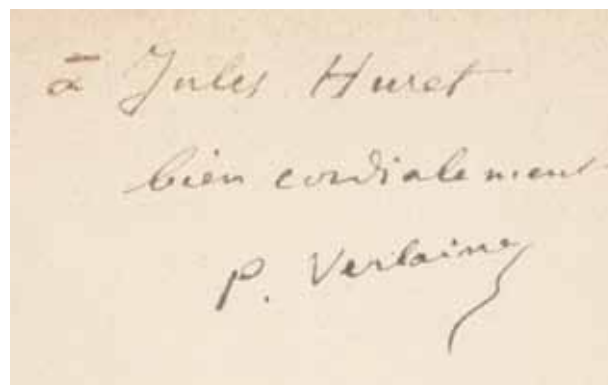 à Jules Huret
bien cordialement
P. Verlaine